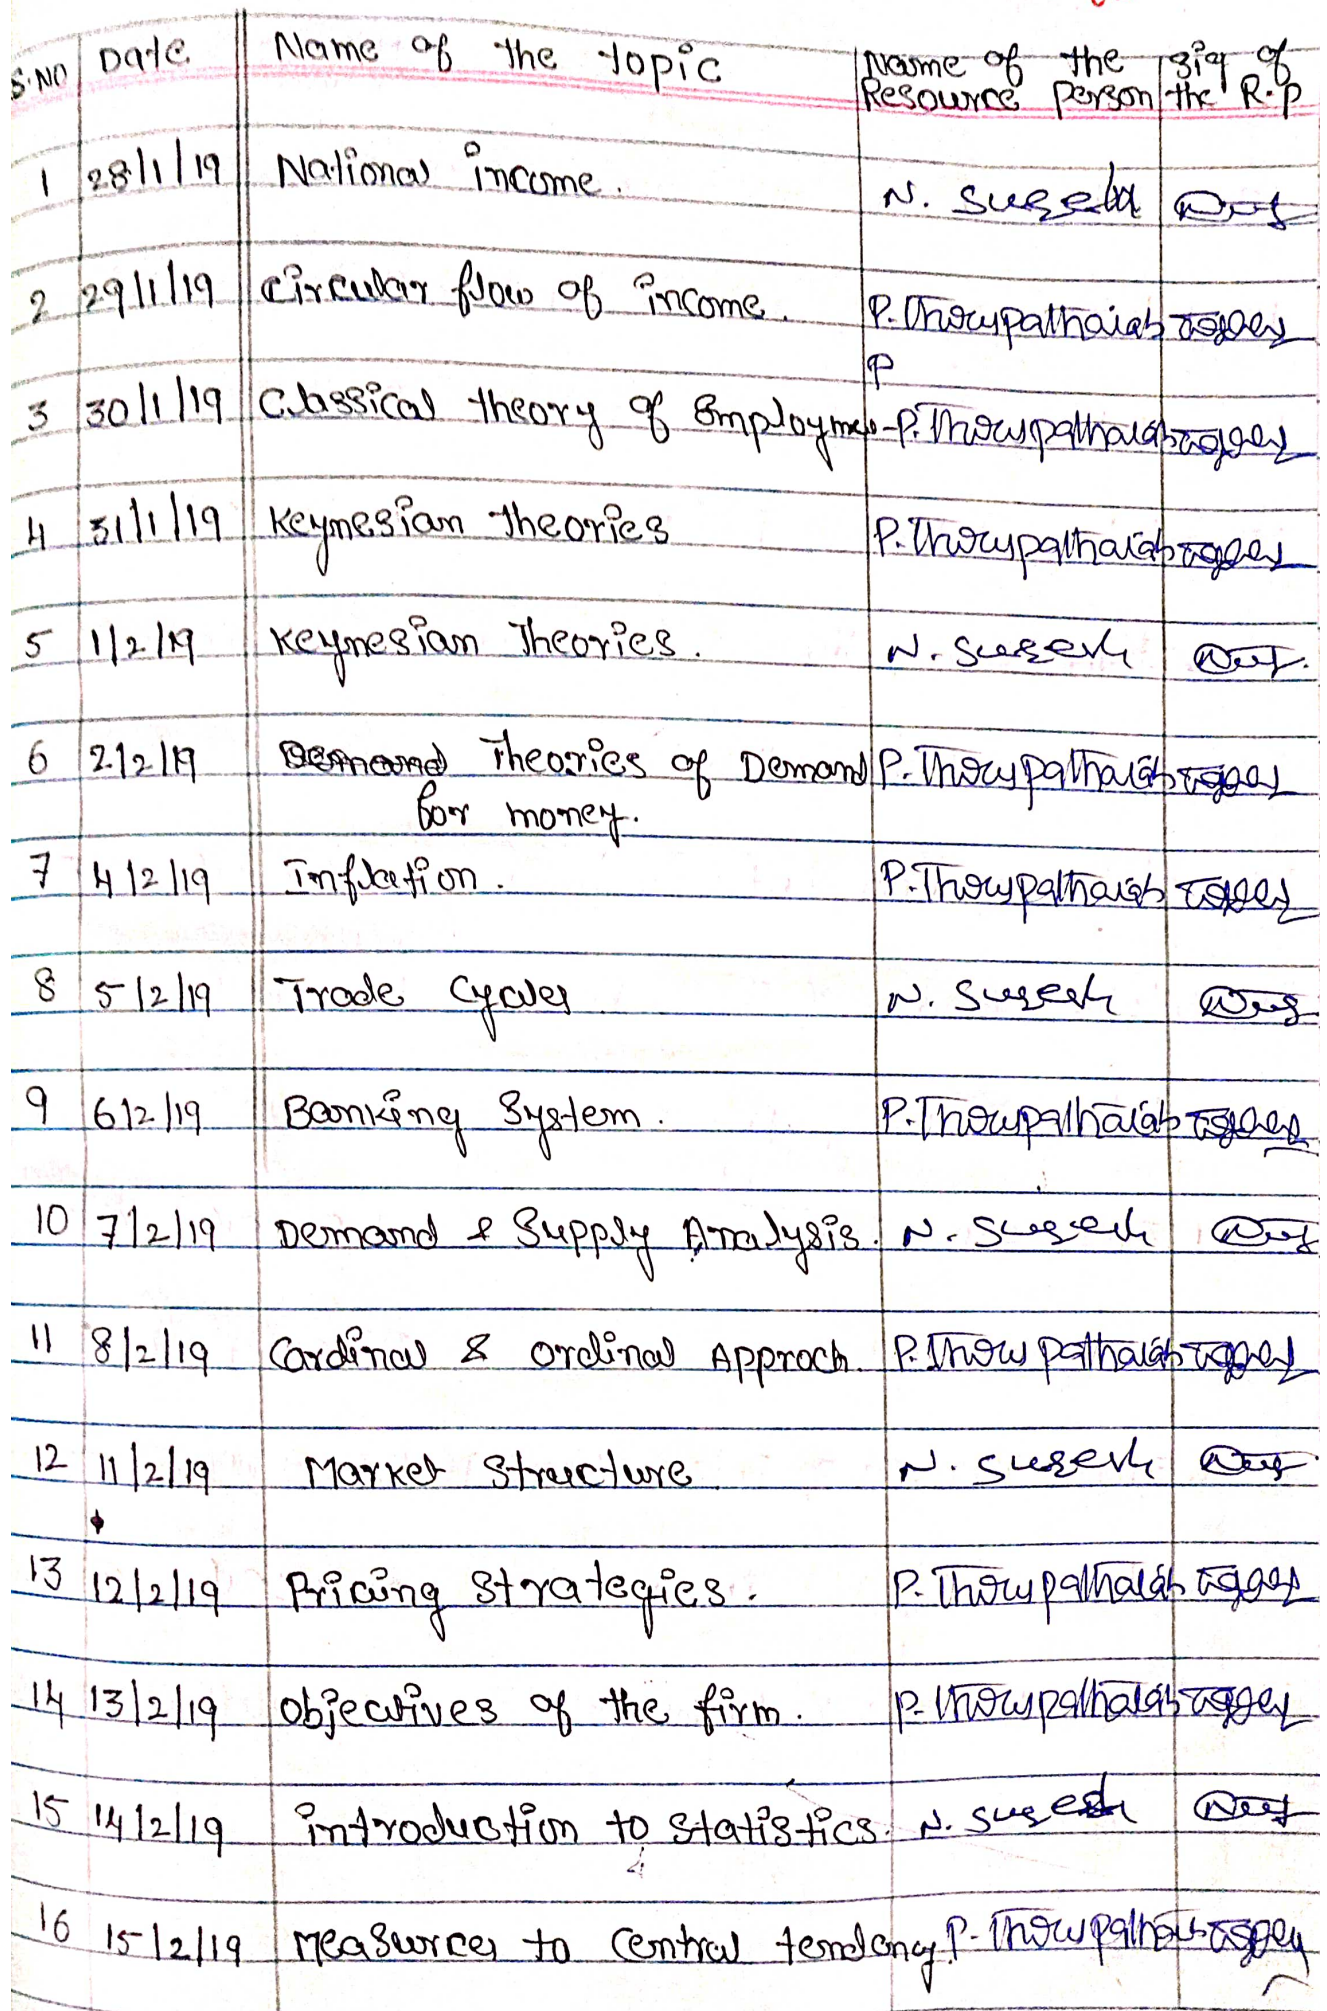 S.NO Date Name of the topic Name of the Resource person Sig of the R.P
1 28/1/19 National income. N. Suresh
2 29/1/19 Circular flow of income. P. Thirupathaiah
P
3 30/1/19 Classical theory of Employme- P. Thirupathaiah
4 31/1/19 Keynesian theories P. Thirupathaiah
5 1/2/19 Keynesian Theories. N. Suresh
6 2/2/19 Theories of Demand P. Thirupathaiah
for money.
7 4/2/19 Inflation. P. Thirupathaiah
8 5/2/19 Trade Cycles N. Suresh
9 6/2/19 Banking System. P. Thirupathaiah
10 7/2/19 Demand & Supply Analysis. N. Suresh
11 8/2/19 Cardinal & ordinal Approch. P. Thirupathaiah
12 11/2/19 Market Structure N. Suresh
13 12/2/19 Pricing Strategies. P. Thirupathaiah
14 13/2/19 objectives of the firm. P. Thirupathaiah
15 14/2/19 introduction to Statistics. N. Suresh
16 15/2/19 Measures to Central tendency. P. Thirupathaiah